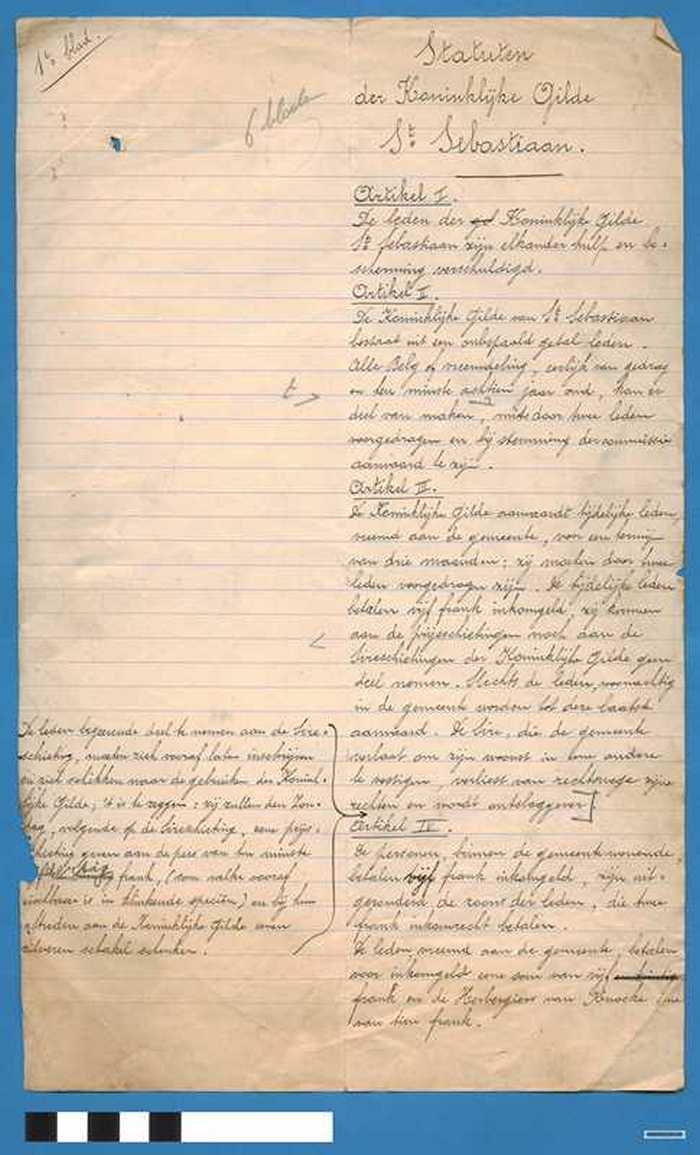 1te blad.
6 bladen
Statuten
der Koninklijke Gilde
St Sebastiaan.
Artikel I.
De leden der Koninklijke Gilde
St Sebastiaan zijn elkander hulp en be-
scherming verschuldigd.
Artikel II.
De Koninklijke Gilde van St Sebastiaan
bestaat uit een onbepaald getal leden.
Alle Belg of vreemdeling, eerlijk van gedrag
en ten minste achtien jaar oud, kan er
deel van maken, mits door twee leden
voorgedragen en bij stemming der commissie
aanvaard te zijn.
Artikel III.
De Koninklijke Gilde aanvaardt tijdelijke leden,
vreemd aan de gemeente, voor een termijn
van drie maanden; zij moeten door twee
leden voorgedragen zijn. De tijdelijke leden
betalen vijf frank inkomgeld, zij kunnen
aan de prijsschietingen noch aan de
Sireschietingen der Koninklijke Gilde geen
deel nemen. Slechts de leden, woonachtig
in de gemeente worden tot deze laatste
aanvaard. De Sire, die de gemeente
verlaat om zijn woonst in eene andere
te vestigen, verliest van rechtswege zijne
rechten en wordt ontslaggever]
De leden begeerende deel te nemen aan de Sire-
schieting, moeten zich vooraf laten inschrijven
en zich schikken naar de gebruiken der Konink-
lijke Gilde; 't is te zeggen: zij zullen den Zon-
dag, volgende op de Sireschieting, eene prijs-
schieting geven aan de pers van ten minste
frank, (som welke vooraf
is in klinkende speciën) en bij hun
aftreden aan de Koninklijke Gilde eenen
zilveren schakel schenken.
Artikel IV.
De personen, binnen de gemeente wonende,
betalen vijf frank inkomgeld, zijn uit-
gezonderd de zoons der leden, die twee
frank inkomrecht betalen.
De leden vreemd aan de gemeente, betalen
voor inkomgeld eene som van vijf
frank en de Herbergiers van Knocke eene
van tien frank.